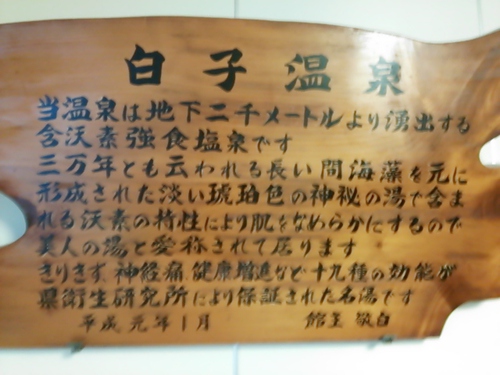 白子温泉
当温泉は地下二千メートルより湧出する
含沃素強食塩泉です
三万年とも云われる長い間海藻を元に
形成された淡い琥珀色の神秘の湯で含ま
れる沃素の特性により肌をなめらかにするので
美人の湯と愛称されて居ります
きりきず、神経痛、健康増進など十九種の効能が
県衛生研究所により保証された名湯です
平成元年1月 館主敬白